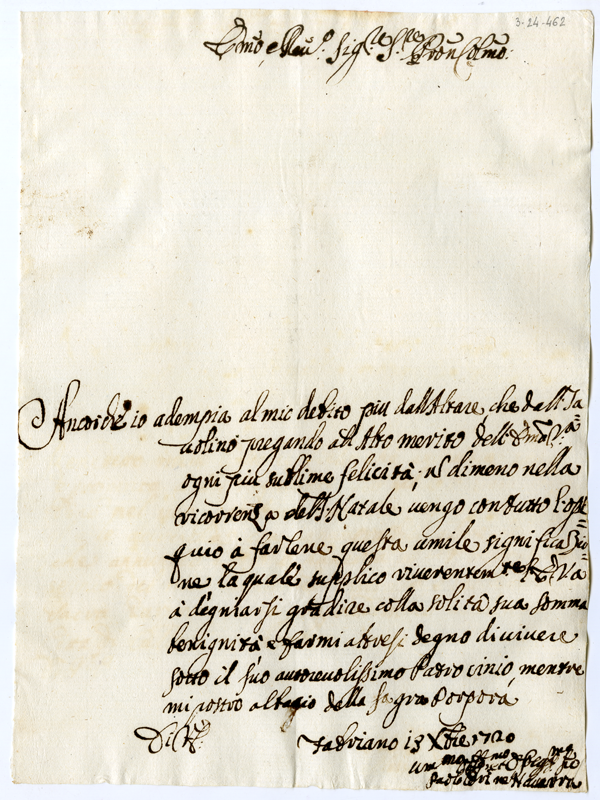 3-24-462
Emo e Reu.o Sig.re S.re Pron Colmo:
Ancorche io adempia al mio debito piu dall'Altare, che dall Ta
uolino pregando all'Alto merito dell'Emza Va
ogni piu sublime felicità; nl dimeno nella
ricorrenza dell S. Natale uengo con tutto l'osse
quio à farlene questa umile significazio
ne la quale supplico riuerentemte l'Emza Va
à degniarsi gradire colla solita sua somma
benignità e farmi altresi degno di uiuere
sotto il suo autoreuolissimo Patrocinio, mentre
mi postro al bagio della sagra Porpora
Di V. E.
Fabriano 13 Xbre 1720